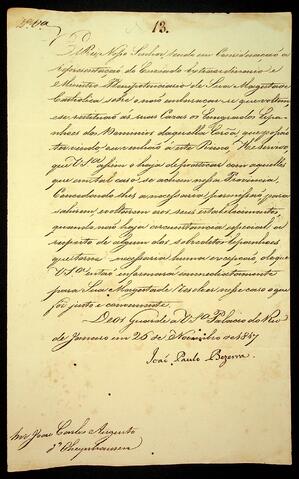 13.
El Rei Nosso Senhor, tendo em Consideração a
representação do Enviado Extraordinario e
Ministro Plenipotenciario de Sua Magestade
Catholica sobre o não embaraçar se que voltem
e se restituão ás suas Casas os Emigrados Espa-
nhoes dos Dominios daquella Corôa, que
tem vindo, ou venhão a este Reino: He servido,
que VSa. assim o haja de praticar com aquelles
que em tal caso se achem nessa Provincia,
Concedendo lhes a necessaria permissão para
sahirem, e voltarem aos seus estabelecimentos,
quando não haja circunstancia especial a
respeito de algum dos sobreditos Espanhoes
que torne necessaria huma excepção, do que
VSa. então informará immediatamente
para Sua Magestade resolver nesse caso o que
for justo e conveniente.
Deos Guarde a VSa. Palacio do Rio
de Janeiro em 26 de Novembro de 1817
João Paulo Bezerra.
Snr. João Carlos Augusto
d'Oeynhausen